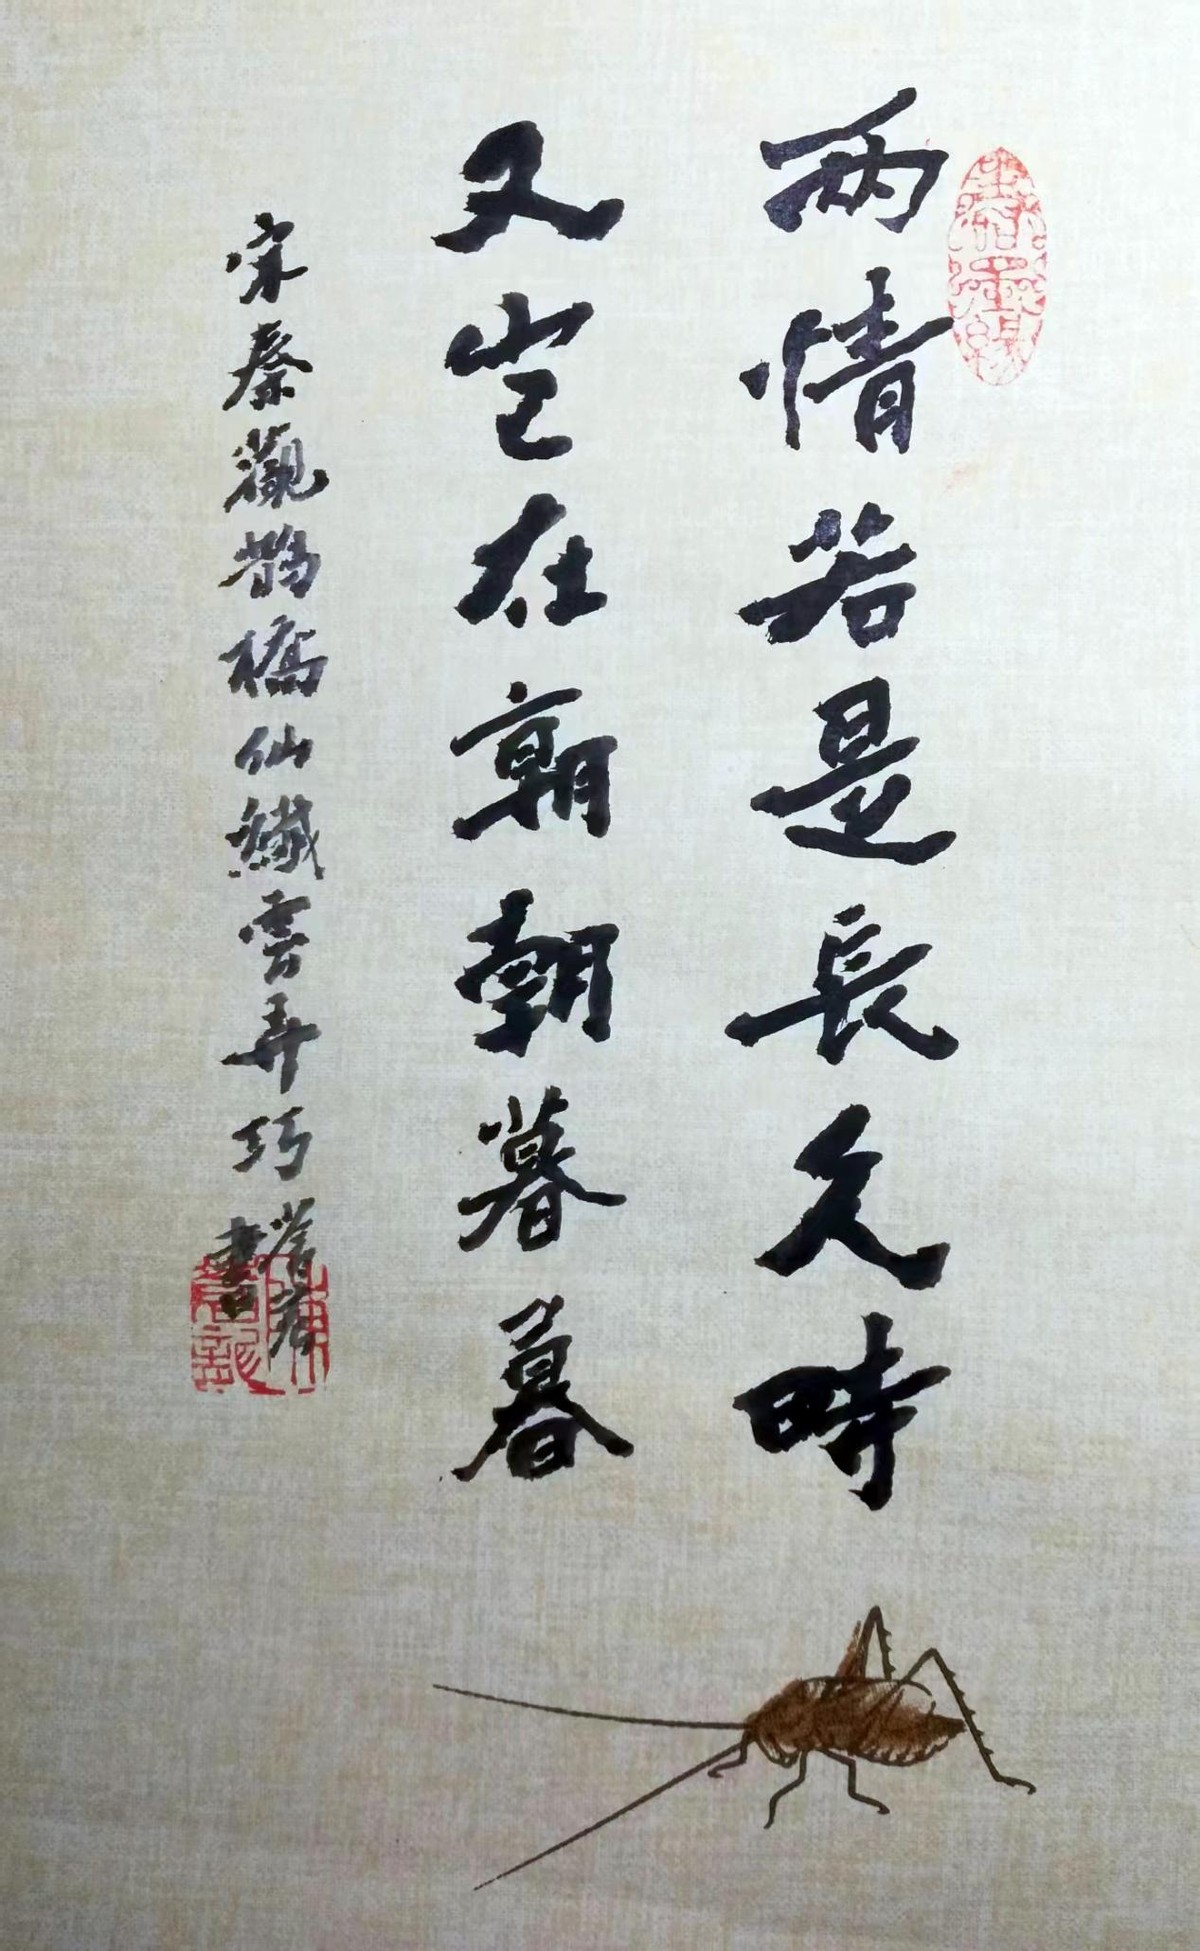 两情若是长久時
又岂在朝朝暮暮
宋秦觀鹊橋仙纖雲弄巧
書